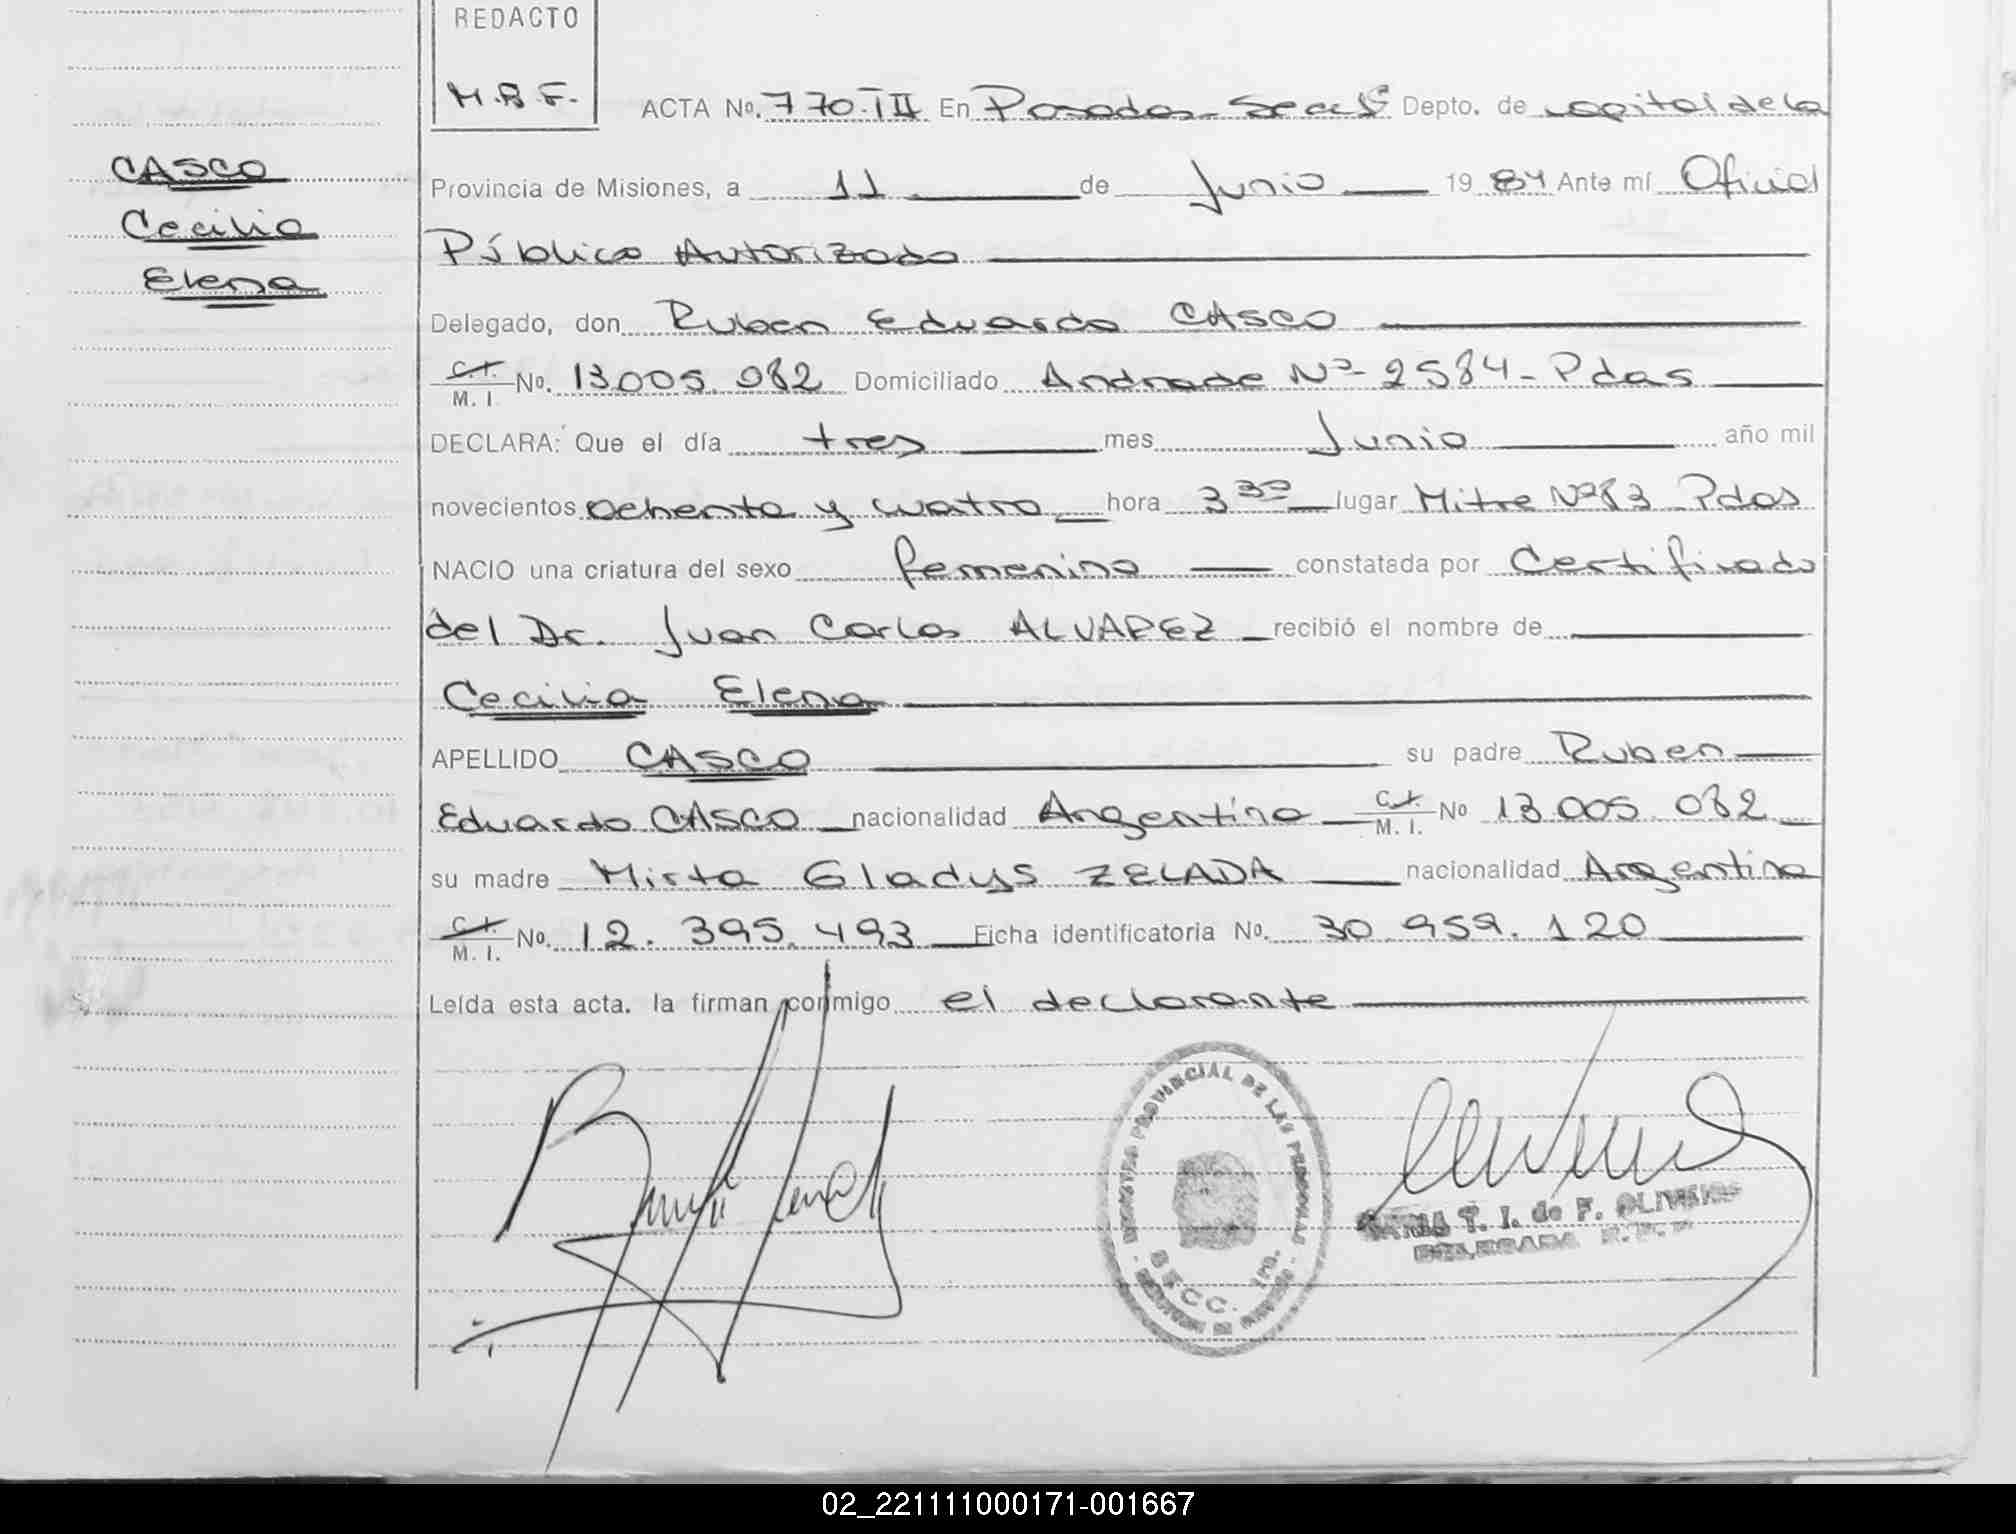 REDACTO
M.B.F.
ACTA No. 770-III En Posadas - Secc 1ª Depto. de capital de la
CASCO
Cecilia
Elena
Provincia de Misiones, a 11 de Junio 1984 Ante mí Oficial
Público Autorizado
Delegado, don Ruben Eduardo CASCO
C.I. M. I. No. 13.005.082 Domiciliado Andrade Nº 2584 - Pdas
DECLARA: Que el día tres mes Junio año mil
novecientos ochenta y cuatro hora 3 30 lugar Mitre Nº 83 - Pdas
NACIO una criatura del sexo femenino constatada por Certificado
del Dr. Juan Carlos ALVAREZ recibió el nombre de
Cecilia Elena
APELLIDO CASCO su padre Ruben
Eduardo CASCO nacionalidad Argentina C.I. M. I. No 13.005.082
su madre Mirta Gladys ZELADA nacionalidad Argentina
C.I. M. I. No. 12.395.493 Ficha identificatoria No. 30.959.120
Leída esta acta. la firman conmigo el declarante
REGISTRO PROVINCIAL DE LAS PERSONAS
T. I. de F. OLIVEIRA
DELEGADA R. P. P.
02_221111000171-001667